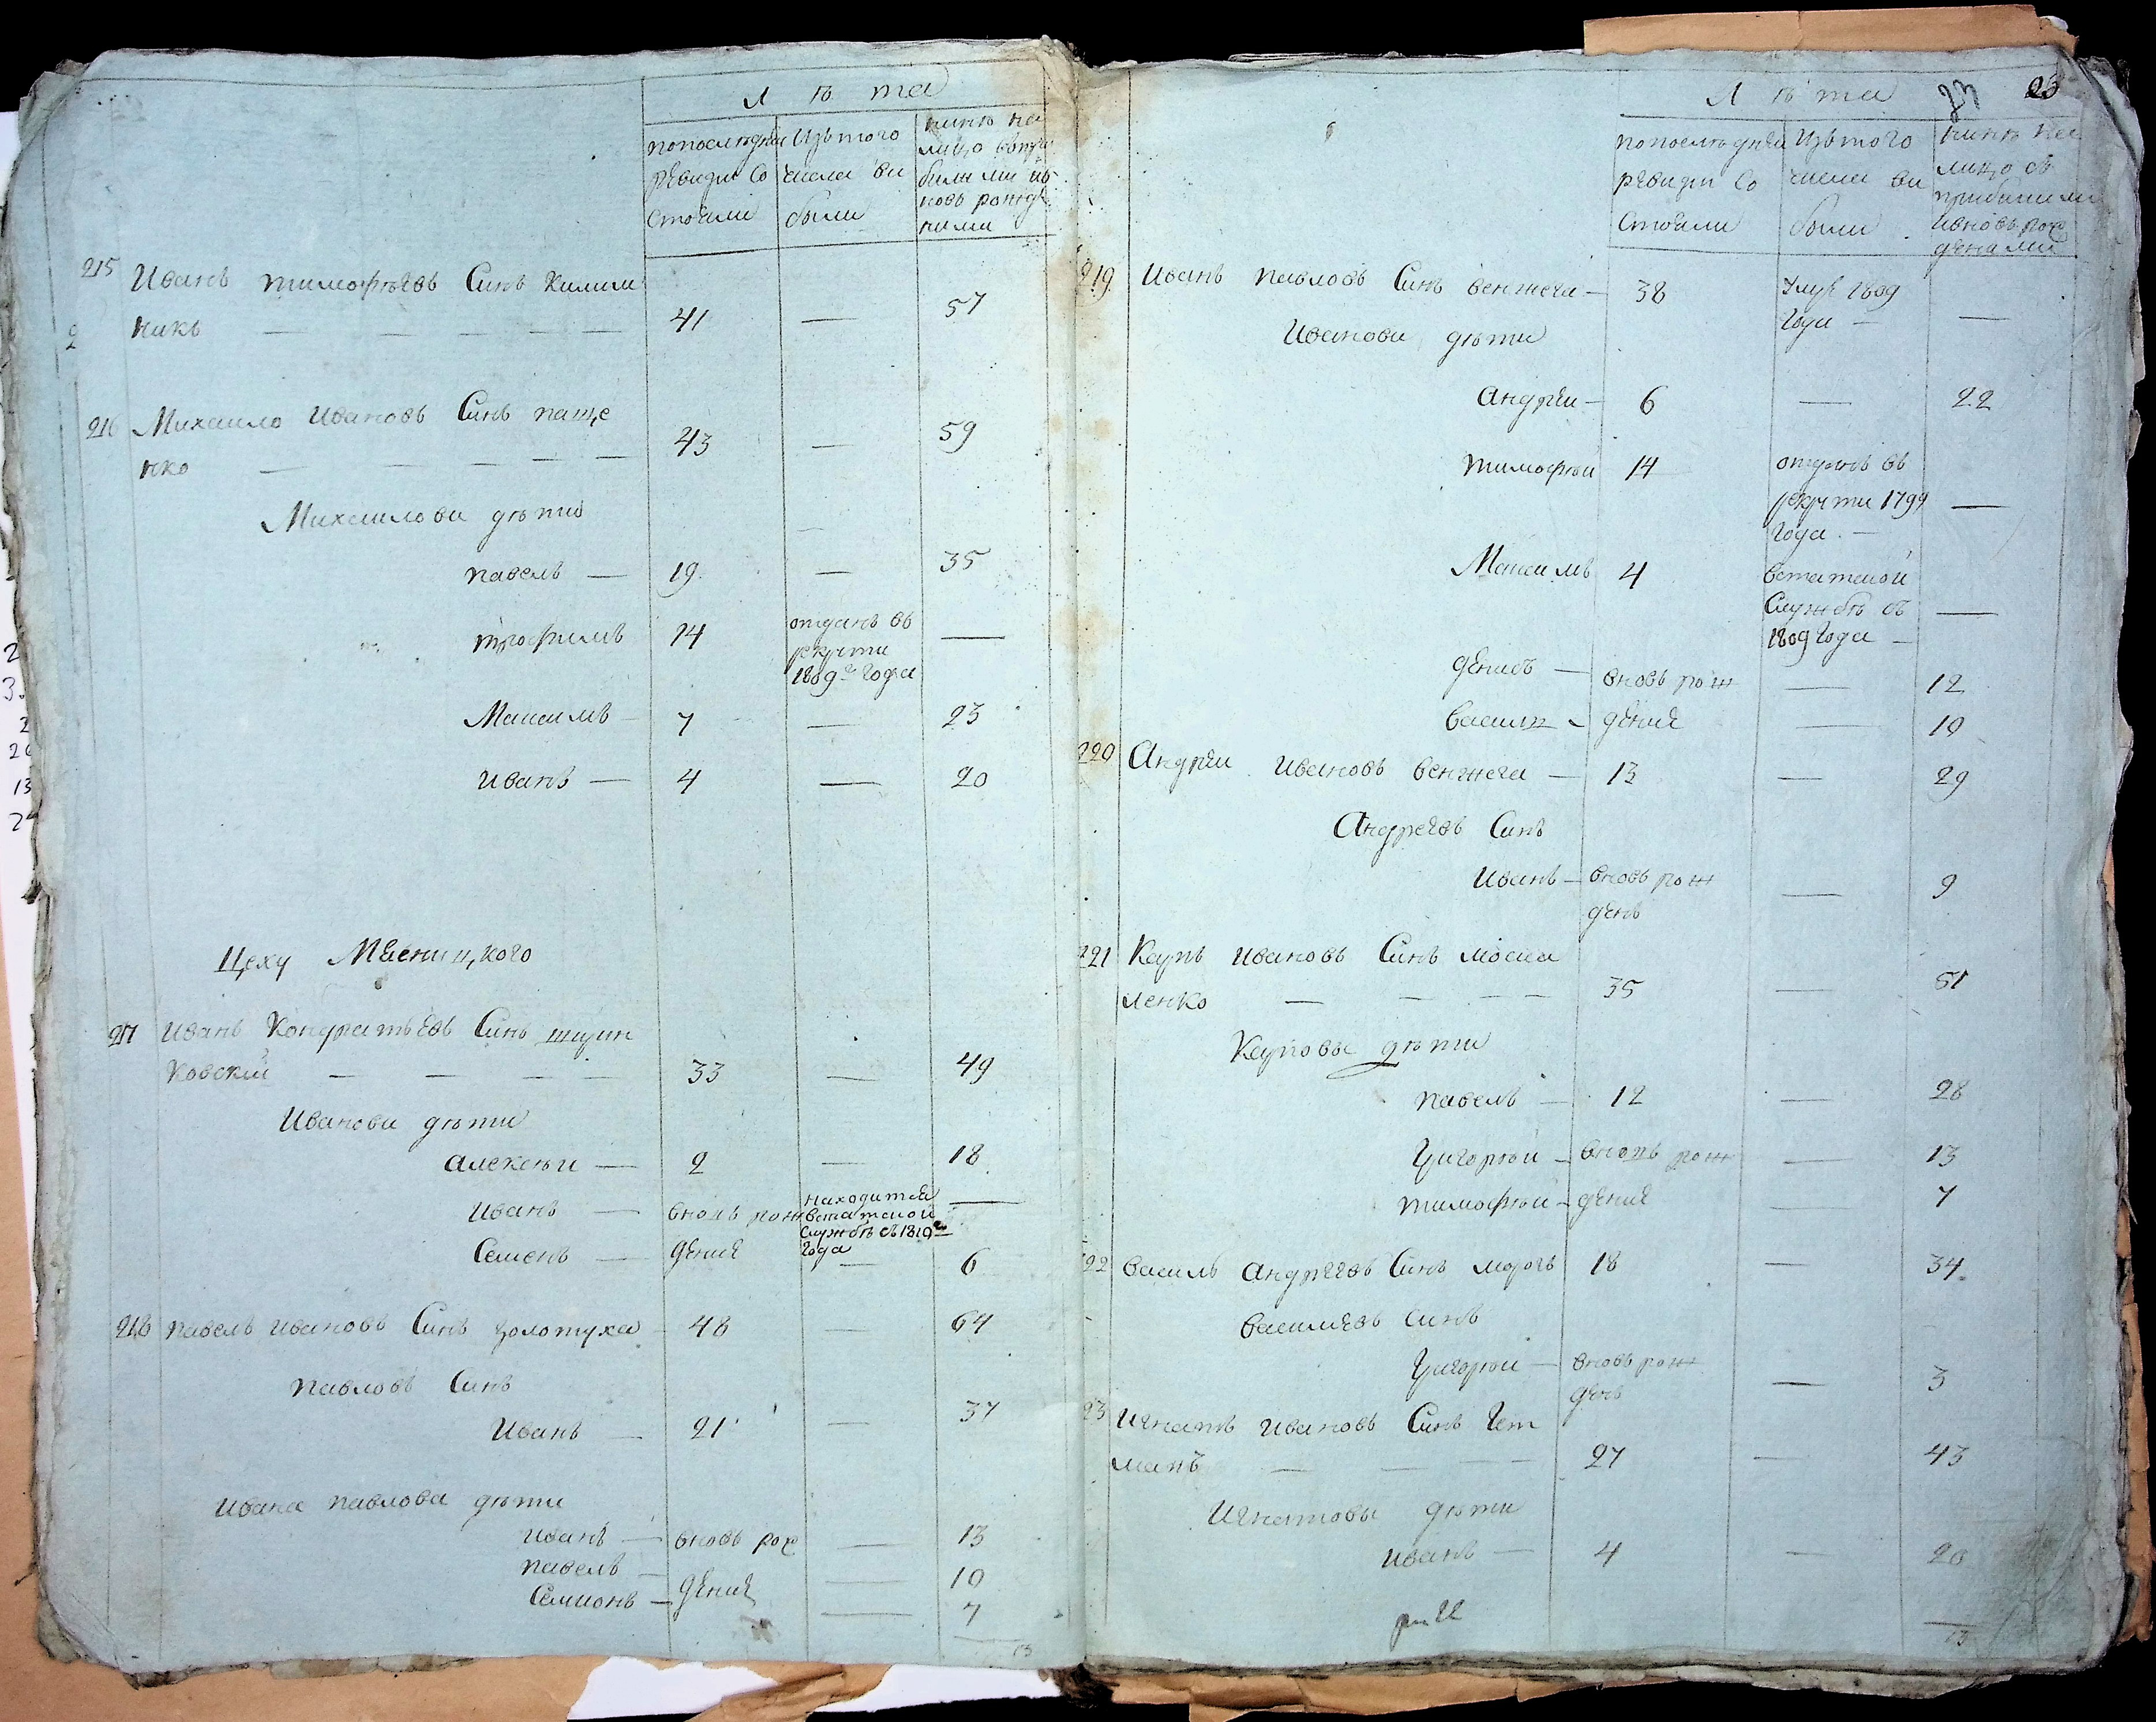 Лѣта
попоследней ревизіи Состояли
Изътого числа выбыли
нынѣ на лицо съприбылими ивновь рожденими
215 Иванъ тимофѣевъ Синъ Килим
никъ — 41 — 57
216 Михаило Ивановъ Синъ паще
нко — 43 — 59
Михаилови дѣти
павелъ — 19 — 35
трофимъ 14 отданъ въ рекрути 1809го года —
Максимъ 7 — 23
Иванъ — 4 — 20
Цеху Мясницкого
217 Иванъ Кондратьевъ Синъ
ковскій — 33 — 49
Иванови дѣти
алексѣи — 2 — 18
Иванъ — вновь рож находится встатской службѣ съ1810го года —
Семенъ — дение — 6
218 павелъ Ивановъ Синъ золотуха — 48 — 64
павловъ Синъ
Иванъ — 21 — 37
Ивана павлова дѣти
иванъ — вновь рож — 13
павелъ — дение — 10
Семионъ — — 7
13
23
Лѣта
попоследней ревизіи Состояли
Изътого числа выбыли
нынѣ на лицо съ прибылими ивновь рожденами
219 Иванъ павловъ Синъ венжега — 38 Умре 1809 года — —
Иванови дѣти
андреи — 6 — 22
тимофѣи 14 отданъ въ рекрути 1799 года — —
Максимъ 4 встатской Службѣ съ 1809 года — —
денисъ — вновь рож — 12
василь — дение — 10
220 Андреи Ивановъ венжега — 13 — 29
Андреевъ Синъ
Иванъ — вновь рож
день — 9
221 Карпъ Ивановъ Синъ моска
ленко — 35 — 51
Карповы дѣти
павелъ — 12 — 28
Григорѣи — вновь рож — 13
тимофѣи — дение — 7
222 василь андреевъ Синъ морозъ 18 — 34
василиевъ Синъ
Григорѣи — вновь рож
день — 3
223 Игнатъ Ивановъ Синъ Гет
манъ — 27 — 43
Игнатовы дѣти
Иванъ — 4 — 20
13